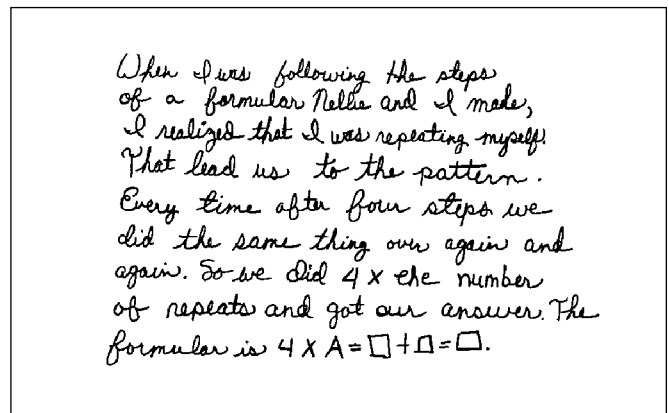 When I was following the steps
of a formular Nellie and I made,
I realized that I was repeating myself.
That lead us to the pattern.
Every time after four steps we
did the same thing over again and
again. So we did 4 x the number
of repeats and got our answer. The
formular is 4 X A = □ + □ = □.